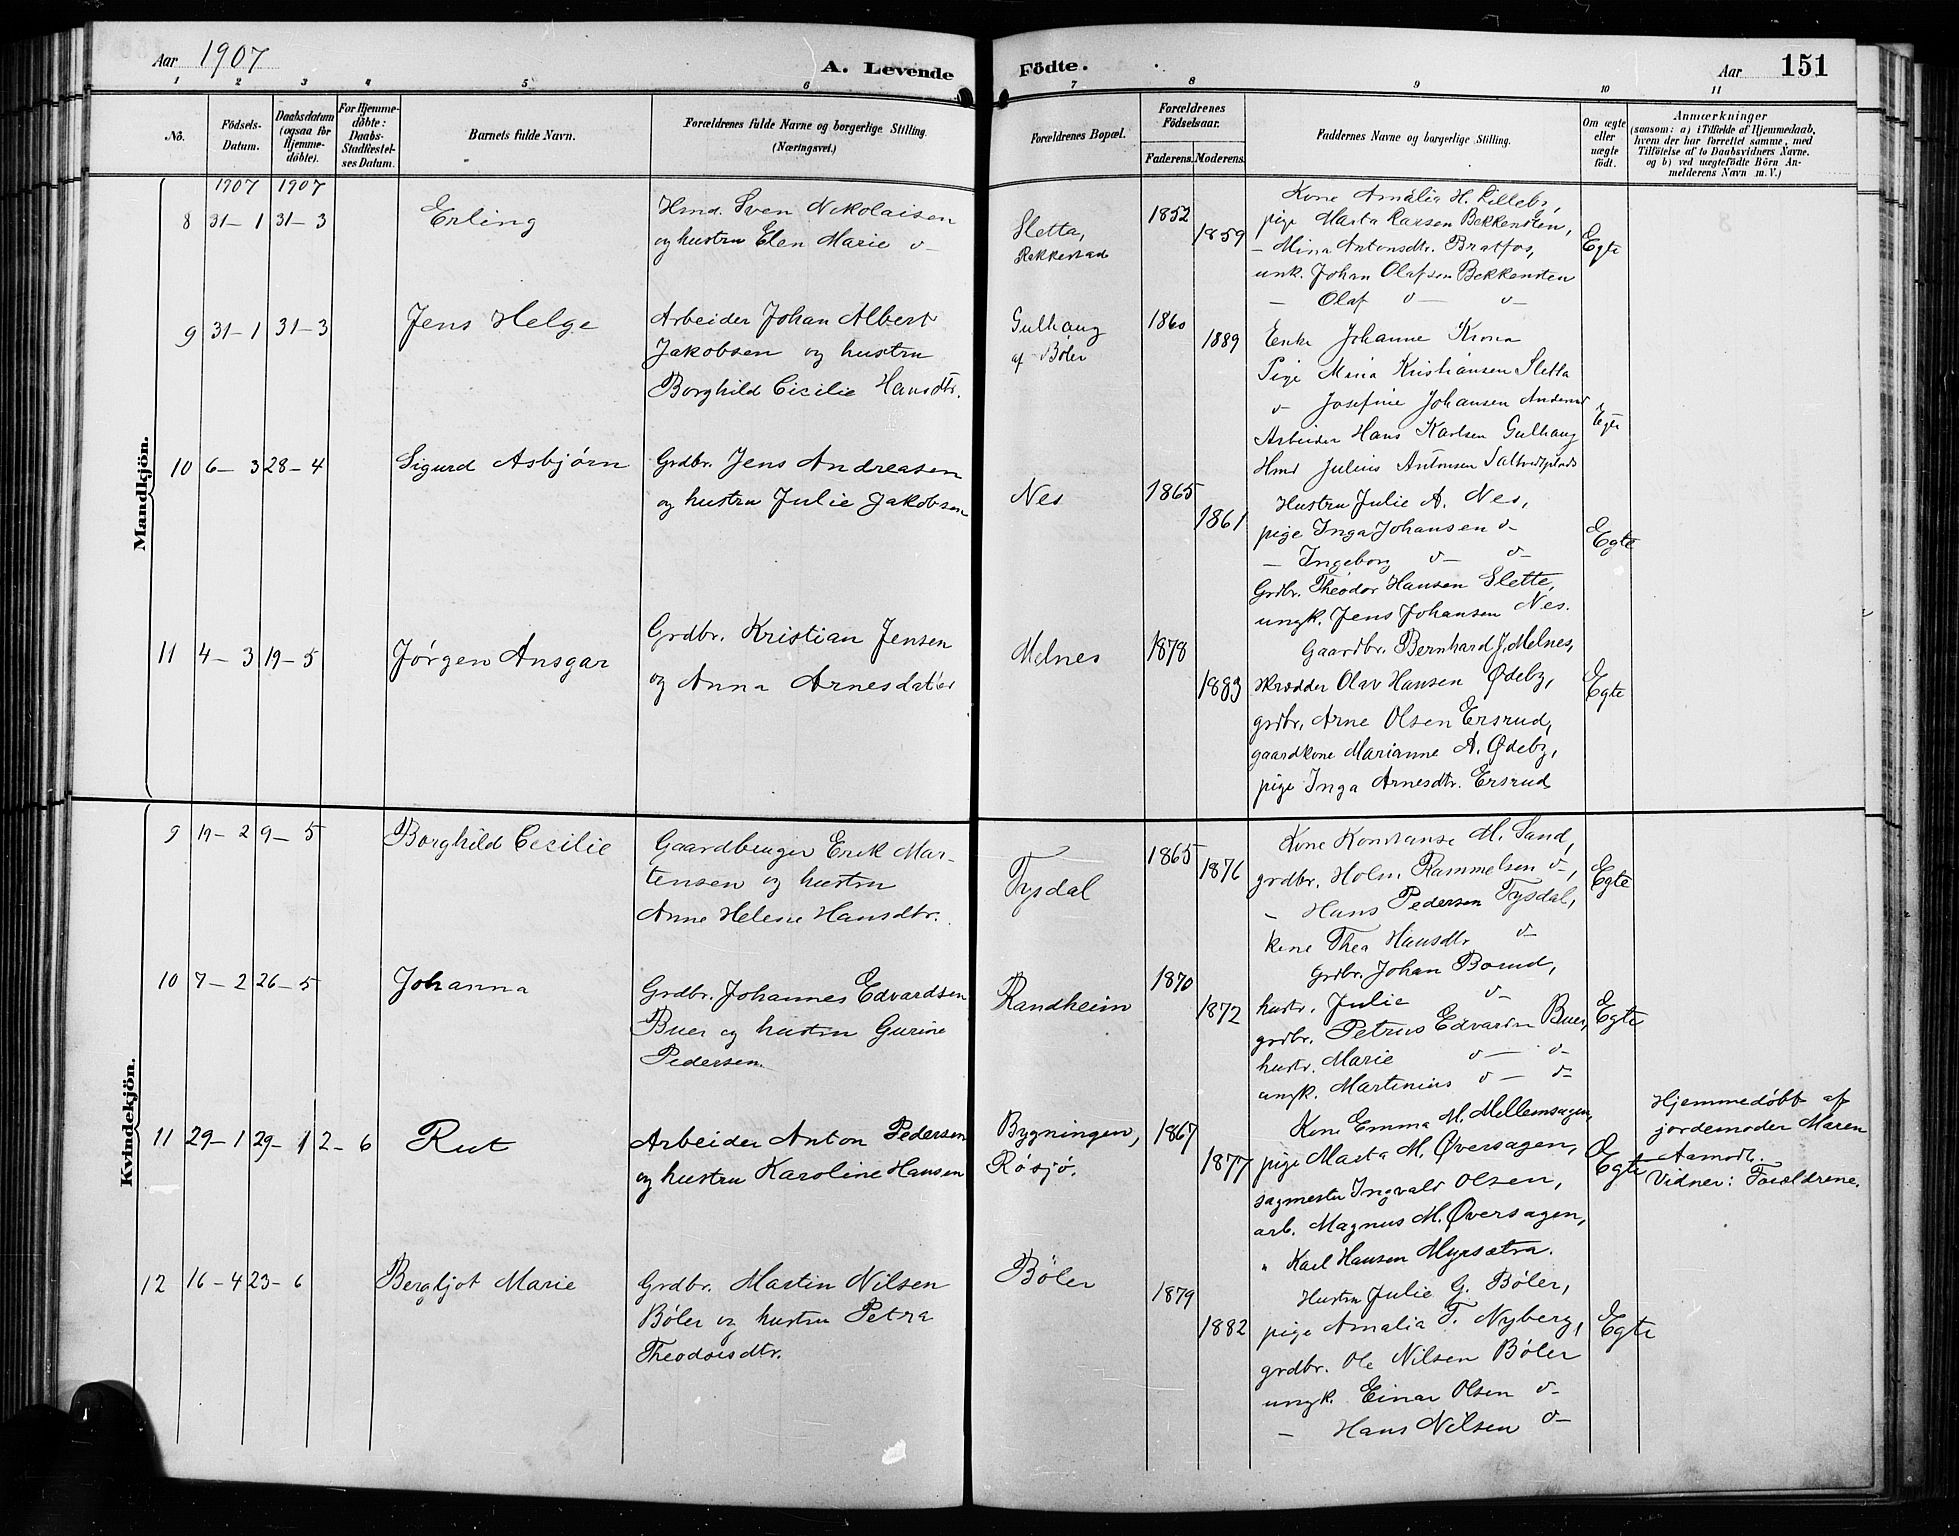 Aar 1907
A. Levende Födte.
Aar 151
1 2 3 4 5 6 7 8 9 10 11
No.
Födsels-Datum.
Daabsdatum (ogsaa for Hjemme-döbte).
For Hjemme-döbte: Daabs-Stadfæstel-ses Datum.
Barnets fulde Navn.
Forældrenes fulde Navne og borgerlige Stilling.
(Næringsvei.)
Forældrenes Bopæl.
Forældrenes Födselsaar.
Faderens. Moderens.
Faddernes Navne og borgerlige Stilling.
Om ægte eller uægte födt.
Anmærkninger
(saasom: a) i Tilfælde af Hjemmedaab,
hvem der har forrettet samme, med
Tilföielse af to Daabsvidners Navne.
og b) ved uægtefödte Börn An-
melderens Navn m. V.)
Mandkjön.
1907 1907
8 31-1 31-3 Erling
Hmd. Sven Nikolaisen
og hustru Elen Marie v-
Sletta,
Rakkestad
1852
1859
Kone Amalia H. Lilleby,
pige Marta Larsen Bekkensten,
- Mina Antonsdtr. Bratfos,
unk. Johan Olafsen Bekkensten
- Olaf v- v-
Egte
9 31-1 31-3 Jens Helge
Arbeider Johan Albert
Jakobsen og hustru
Borghild Cicilie Hansdtr.
Gulhaug
af Bøler
1860
1889
Enke Johanne Krona
Pige Maria Kristiansen Sletta
v Josefine Johansen
Arbeider Hans Karlsen Gulhaug
Hmd Julius Antonsen
Egte
10 6-3 28-4 Sigurd Asbjørn
Grdbr. Jens Andreasen
og hustru Julie Jakobsen
Nes
1865
1861
Hustru Julie A. Nes,
pige Inga Johansen v-
- Ingeborg v- v-
Grdbr. Theodor Hansen Slette,
ungk. Jens Johansen Nes.
Egte
11 4-3 19-5 Jørgen Ansgar
Grdbr. Kristian Jensen
og Anna Arnesdatter
Melnes
1878
1883
Gaardbr. Bernhard J. Melnes,
skrædder Olav Hansen Ødeby,
grdbr. Arne Olsen Ersrud,
gaardkone Marianne A. Ødeby,
pige Inga Arnesdtr. Ersrud
Egte
Kvindekjön.
9 19-2 9-5 Borghild Cecilie
Gaardbruger Erik Mar-
tensen og hustru
Anne Helene Hansdtr.
Tysdal
1865
1876
Kone Konstanse M. Sand,
grdbr. Holm Rammelsen v-,
- Hans Pedersen Tysdal,
kone Thea Hansdtr v-
Egte
10 7-2 26-5 Johanna
Grdbr. Johannes Edvardsen
Buer og hustru Gurine
Pedersen.
Randheim
1870
1872
Grdbr. Johan Borud,
hustr. Julie v-
grdbr. Petrus Edvardsn Buer,
hustr. Marie v- v-
ungk. Martinius v- v-
Egte
11 29-1 29-1 2-6 Rut
Arbeider Anton Pedersen
og hustru Karoline Hansen
Bygningen,
Røsjø.
1867
1877
Kone Emma M. Mellemsagen,
pige Marta M. Øversagen,
sagmester Ingvald Olsen,
arb. Magnus M. Øversagen,
" Karl Hansen Myrsætra.
Egte
Hjemmedøbt af
jordemoder Maren
Aamodt.
Vidner: Forældrene.
12 16-4 23-6 Bergljot Marie
Grdbr. Martin Nilsen
Bøler og hustru Petra
Theodorsdtr.
Bøler
1879
1882
Hustru Julie G. Bøler,
pige Amalia T. Nyberg,
grdbr. Ole Nilsen Bøler
ungk. Einar Olsen v-
- Hans Nilsen v-
Egte